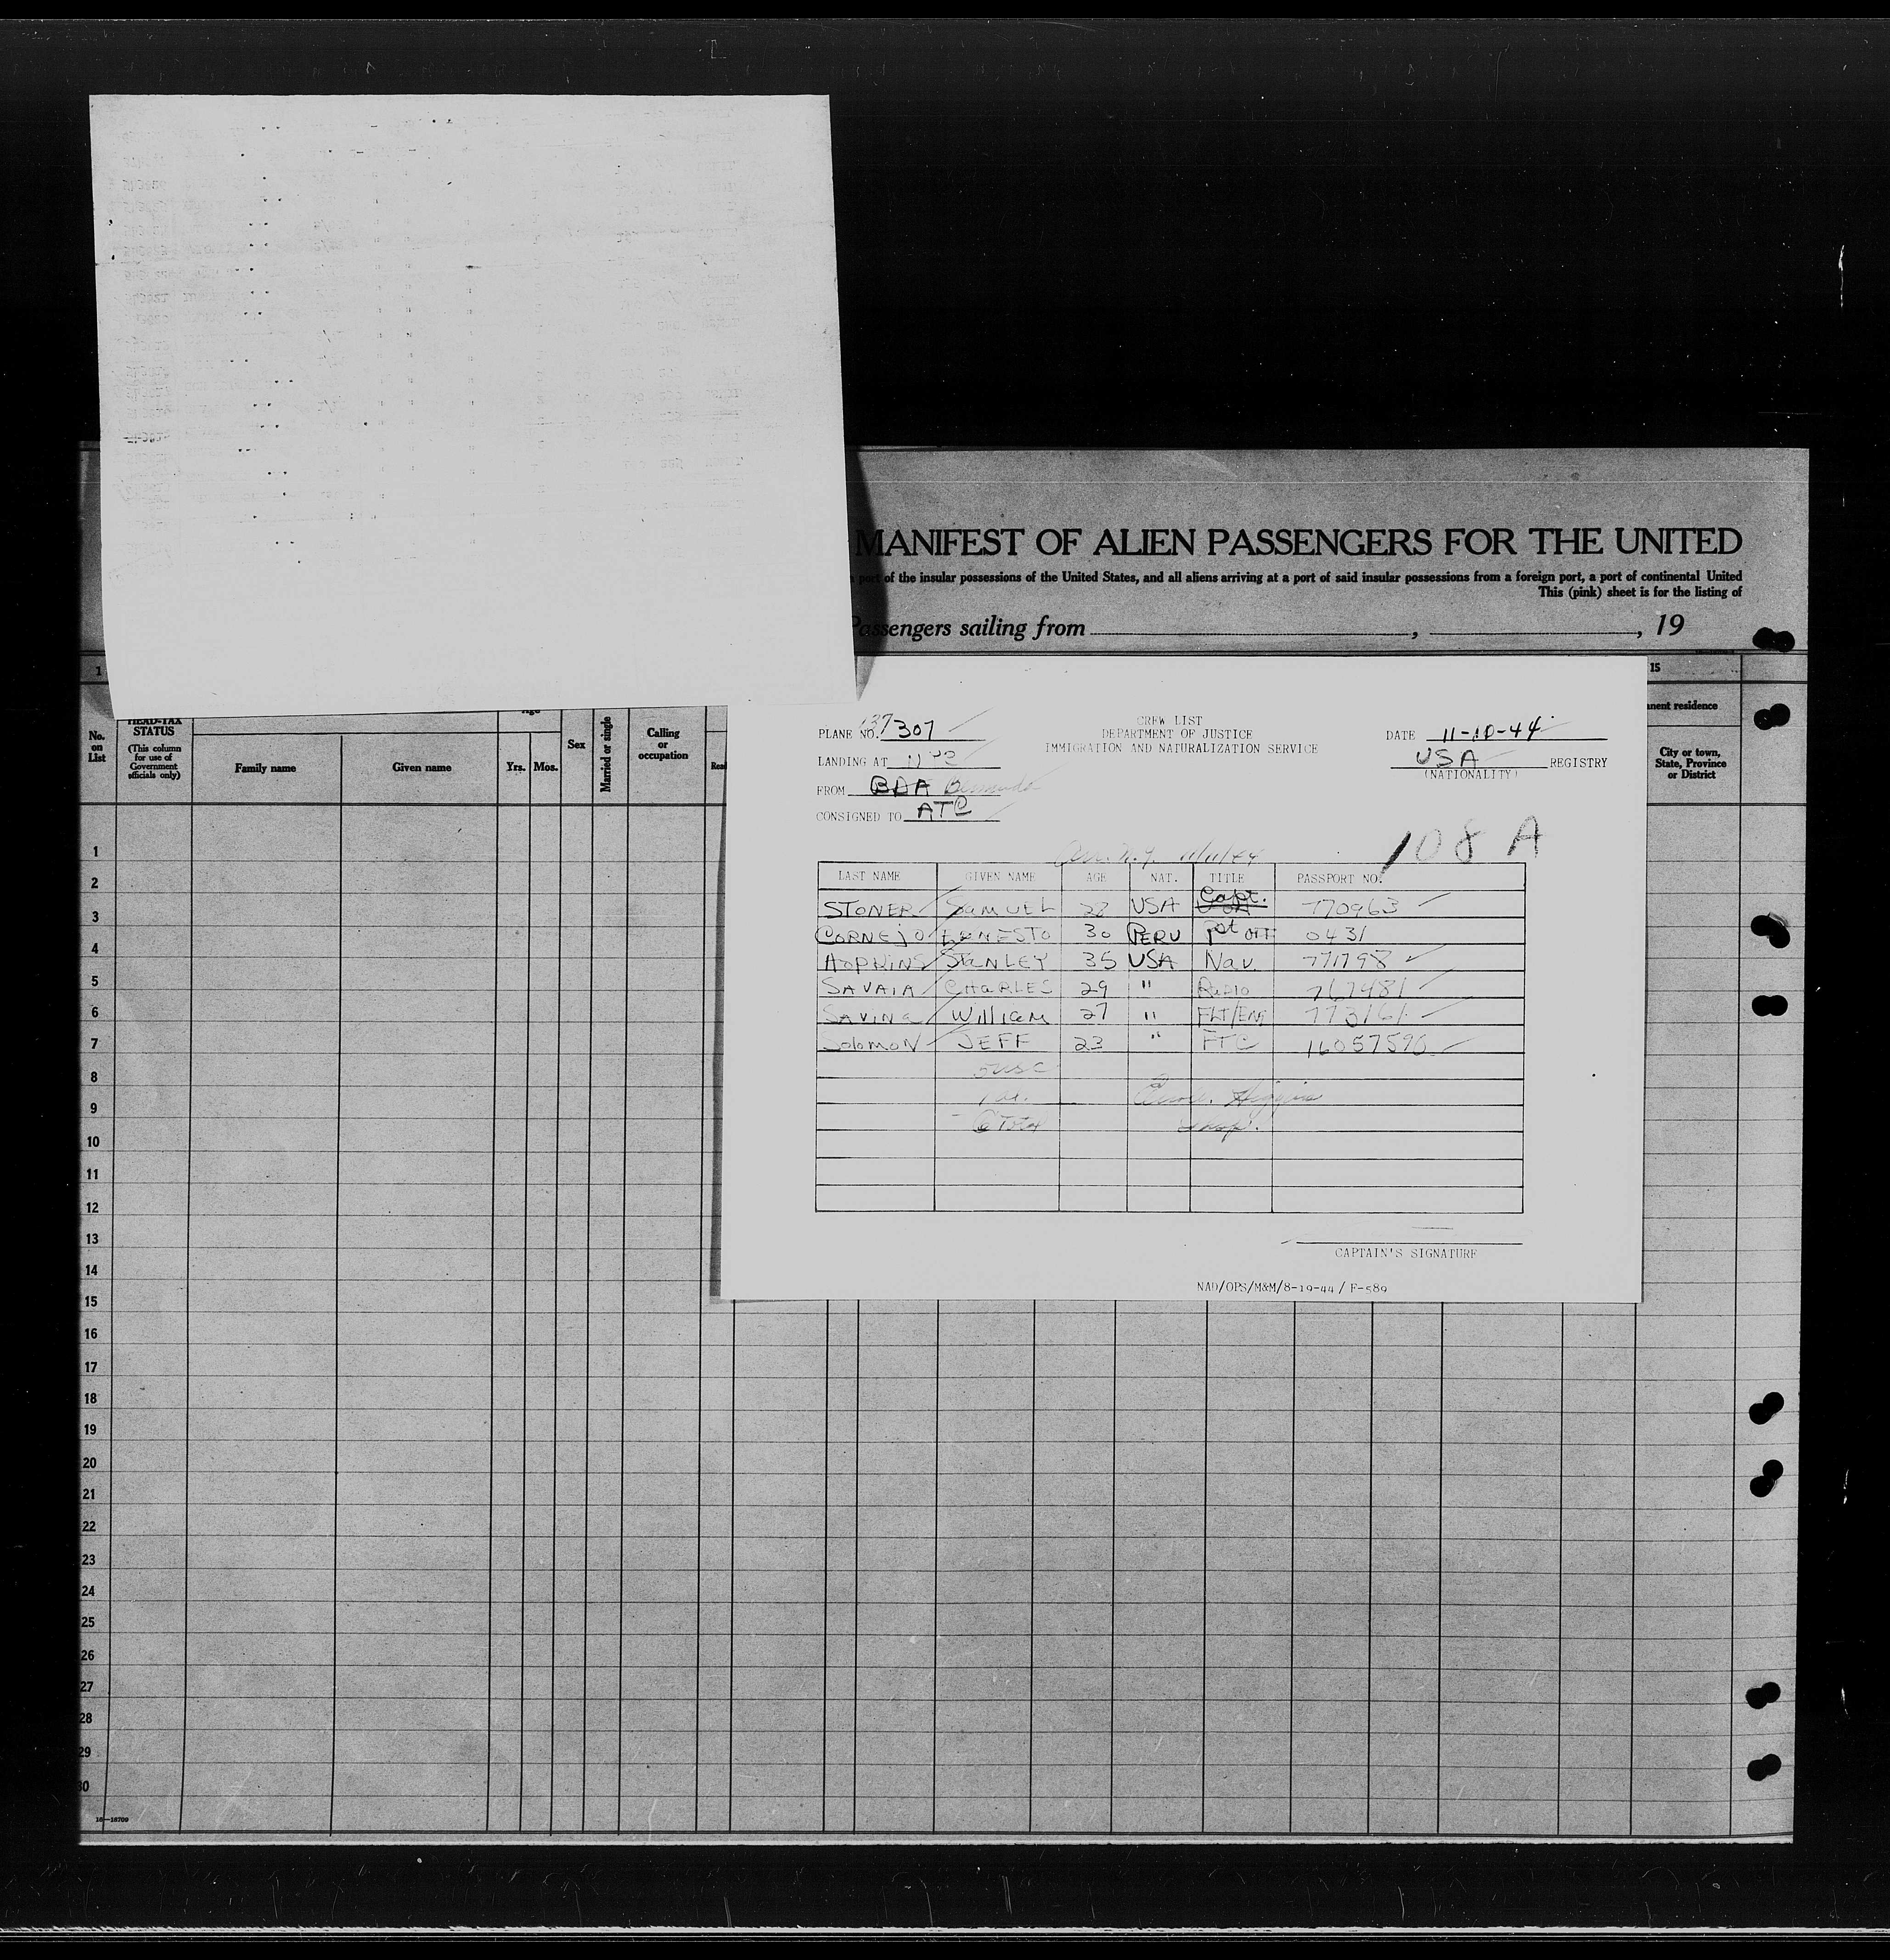 MANIFEST OF ALIEN PASSENGERS FOR THE UNITED
port of the insular possessions of the United States, and all aliens arriving at a port of said insular possessions from a foreign port, a port of continental United
This (pink) sheet is for the listing of
Passengers sailing from , , 19
1
15
No. on List
HEAD-TAX STATUS
(This column for use of Government officials only)
Family name
Given name
Age
Yrs.
Mos.
Sex
Married or single
Calling or occupation
Read
nent residence
City or town, State, Province or District
CREW LIST
DEPARTMENT OF JUSTICE
IMMIGRATION AND NATURALIZATION SERVICE
PLANE NO. 137307
DATE 11-10-44
LANDING AT
USA REGISTRY
(NATIONALITY)
FROM BDA Bermuda
CONSIGNED TO ATC
108 A
Arr. N.Y. 11/11/44
LAST NAME GIVEN NAME AGE NAT. TITLE PASSPORT NO.
STONER SAMUEL 28 USA Capt. 770963
CORNEJO ERNESTO 30 PERU 1st Off 0431
HOPKINS STANLEY 35 USA Nav. 771798
SAVAIA CHARLES 29 " RADIO 767481
SAVING WILLIAM 27 " FLT/ENG 773161
SOLOMON JEFF 23 " FTC 16057590
5 USC
1 al.
6 Total
Higgins
Insp.
CAPTAIN'S SIGNATURE
NAD/OPS/M&M/8-19-44/ F-589
1
2
3
4
5
6
7
8
9
10
11
12
13
14
15
16
17
18
19
20
21
22
23
24
25
26
27
28
29
30
16—18709